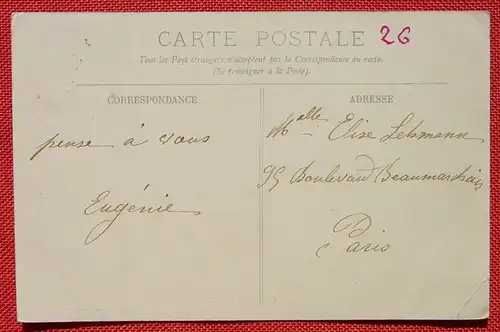 CARTE POSTALE
26
Tous les Pays étrangers n'acceptent pas la Correspondance au recto.
(Se renseigner à la Poste).
CORRESPONDANCE
pense à vous
Eugénie
ADRESSE
Melle Elise Lehmann
95 Boulevard Beaumarchais
Paris